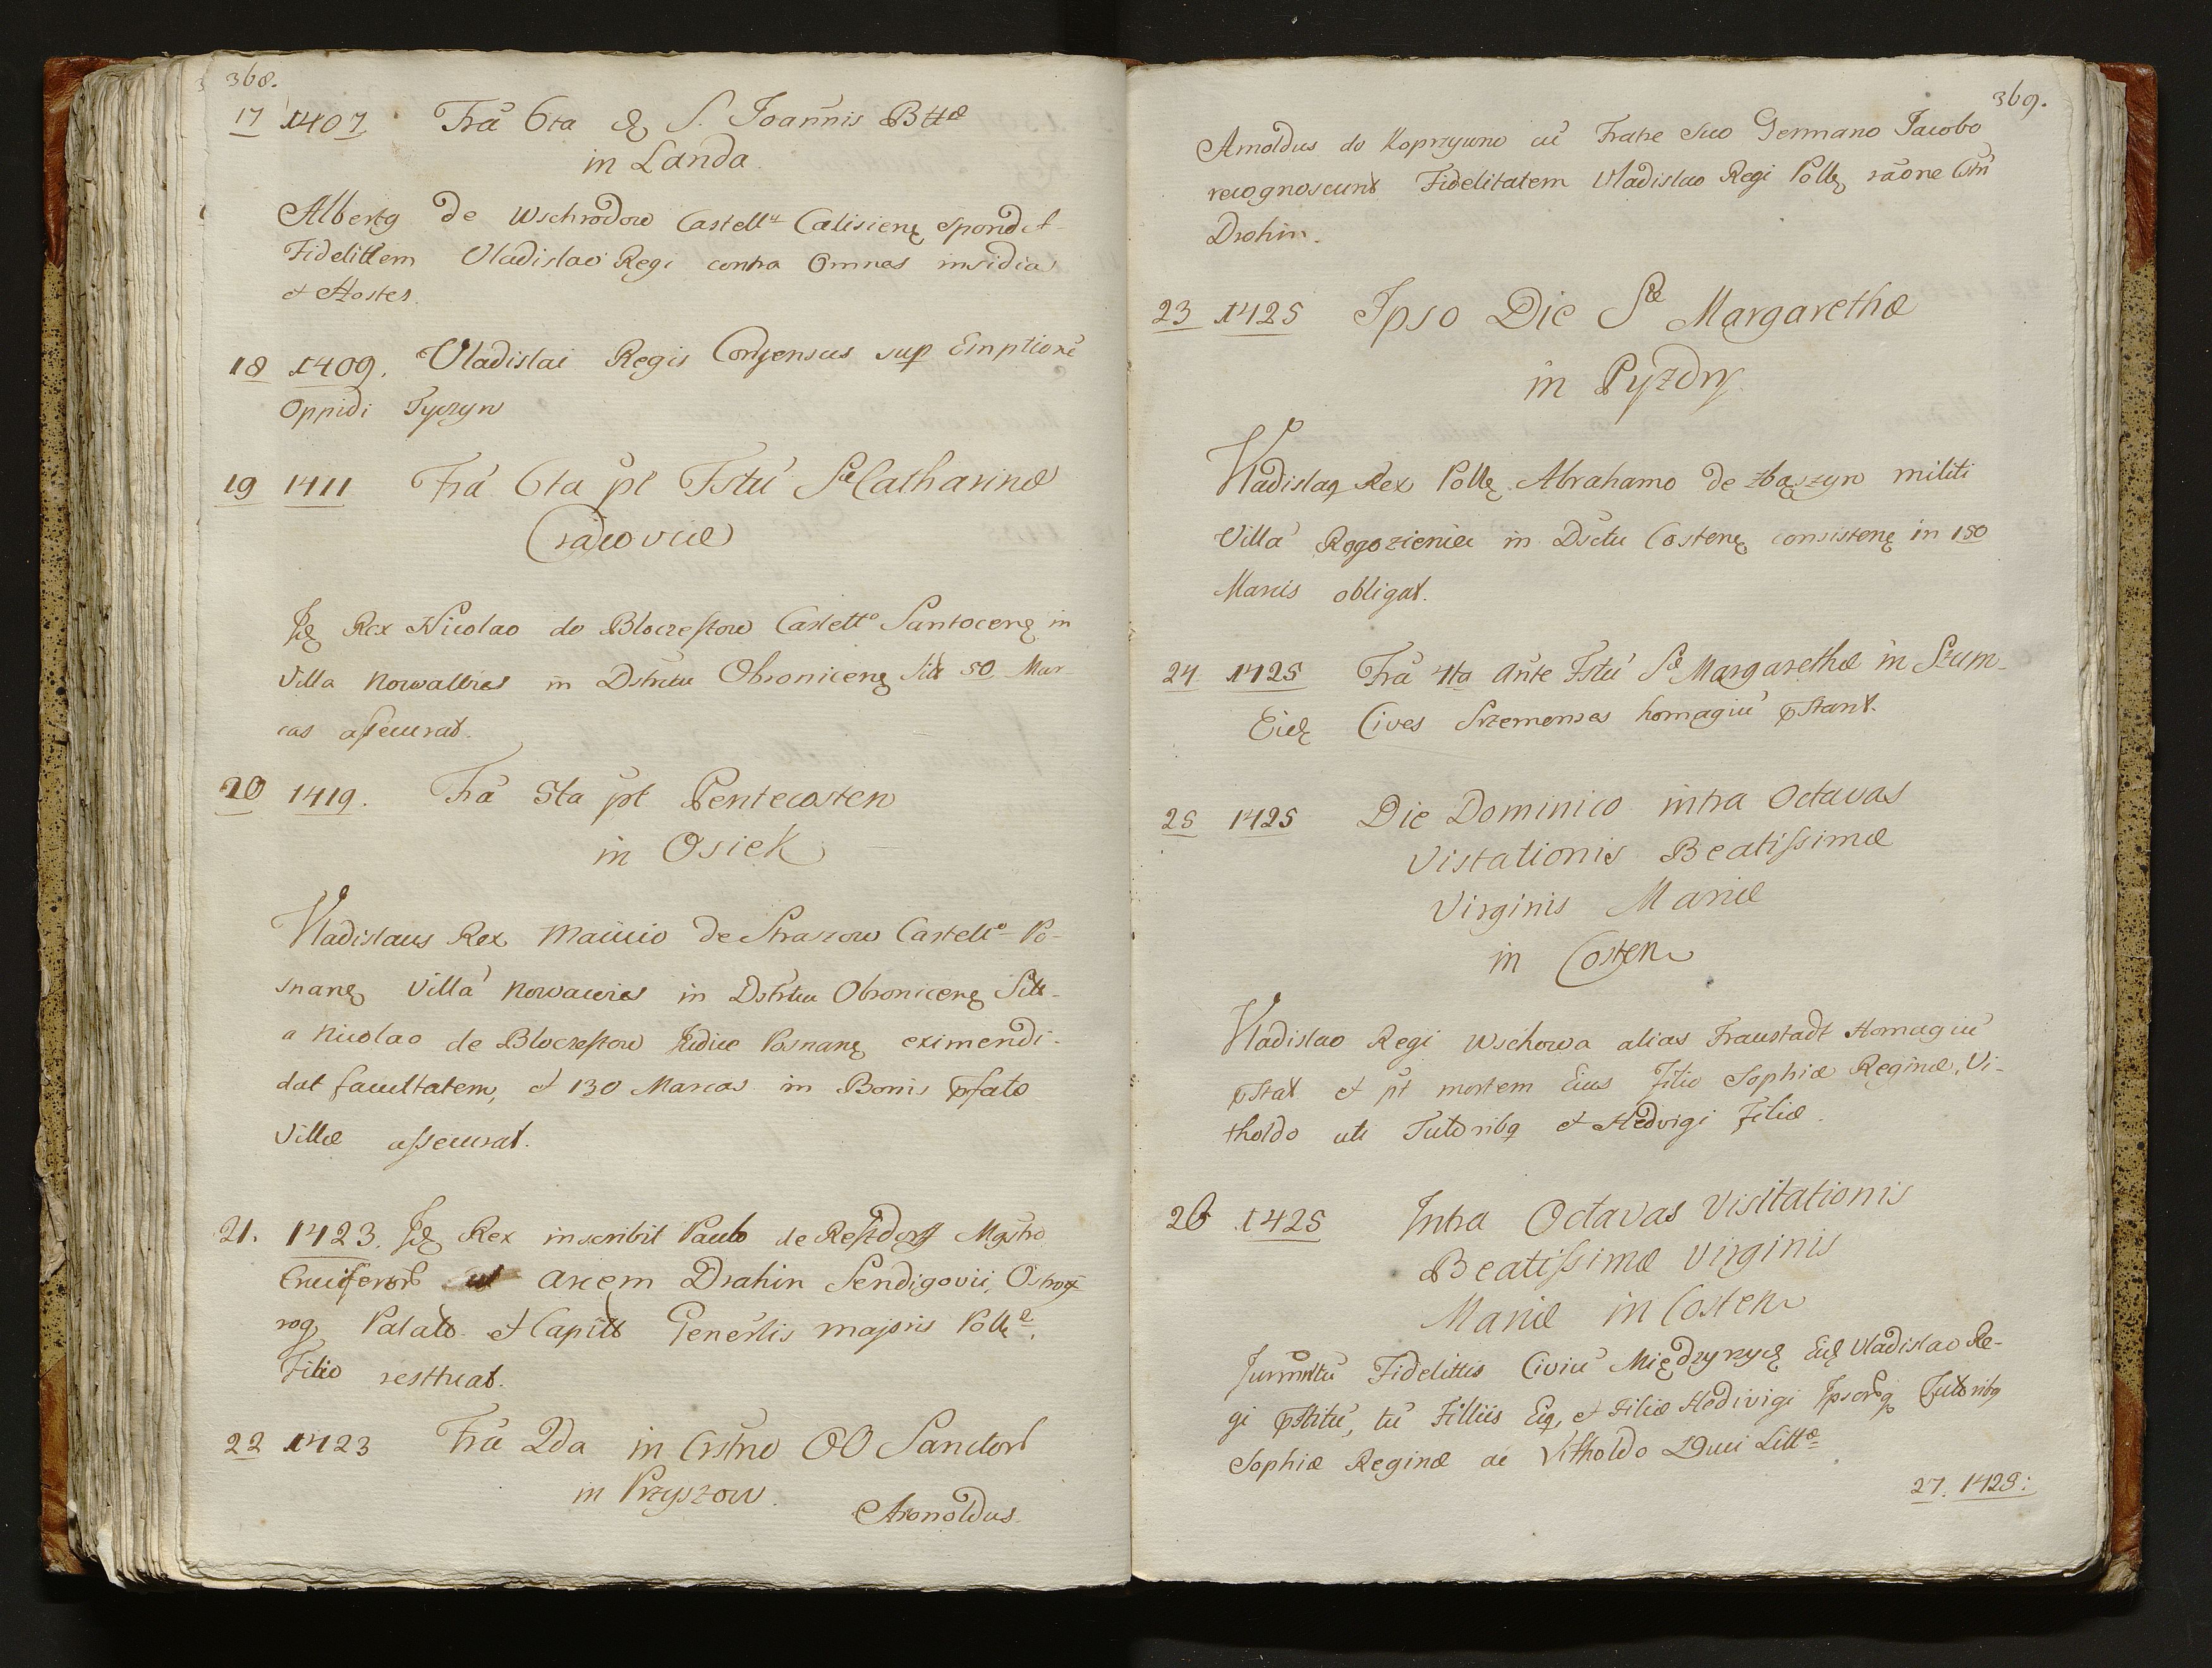 368.
17 1407. Frā 6ta ę S. Joannis Bttæ
in Landa.
Albertg de Wschrodow Castellꝰ Calisienę Spondet
Fidelittem Vladislao Regi contra Omnes insidias
et Hostes.
18 1409. Vladislai Regis Consensus sup Emptionē
Oppidi Tyczyn
19 1411 Frā 6ta pt Fstū Sæ Catharinæ
Cracoviæ
Idę Rex Nicolao de Bloczeszow Castello Santocenę in
Villa Nowawies in Dstrictu Obronicenę Sitt 50 Mar
cas assecurat.
20 1419. Frā 5ta pt Pentecosten
in Osiek
Vladislaus Rex Maccio de Straszow Castello Po-
snanę Villā Nowawies in Dstrictu Obronicenę Sitt-
a Nicolao de Bloczeszow Judice Posnanę eximendi-
dat facultatem, et 130 Marcas in Bonis pfato
Villæ assecurat.
21. 1423. Idę Rex inscribit Paulo de Restdorff Mgstro
Cruciferor ut arcem Drahin Sendigovii, Ostro-
rog Palat. et Capitt Generlis majoris Pollæ,
Filio resttuat.
22 1423 Frā 2da in Crstno OO Sanctor
in Przyszow.
Arnoldus.
369.
Arnoldus de Koprzywno cū Fratre Suo Germano Jacobo
recognoscunt Fidelitatem Vladislao Regi Pollę rāone Cstri
Drohim.
23 1425 Ipso Die Sæ Margarethæ
in Pyzdry.
Vladislaq Rex Pollę Abrahamo de Zbąszyn militi
Villā Rogozieniec in Dsctu Costenę consistenę in 150
Marcis obligat.
24 1425 Frā 4ta ante Fstū Sæ Margarethæ in Szrem-
Eidę Cives Srzemenses homagiū pstant.
25 1425 Die Dominico intra Octavas
Vistationis Beatissimæ
Virginis Mariæ
in Costen
Vladislao Regi Wschowa alias Fraustadt Homagiū
pstat et pt mortem Eius Filio Sophiæ Reginæ, Vi-
tholdo uti Tutoribq et Hedvigi Filiæ.
26 1425 Intra Octavas Visitationis
Beatissimæ Virginis
Mariæ in Costen
Jurmntū Fidelittis Civiū Międzyrzycę Eidę Vladislao Re-
gi pstitū, tū Filliis Eiq, et Filiæ Hedivigi Ipsorq Tutoribq
Sophiæ Reginæ ac Vitholdo Duci Littæ
27. 1425: